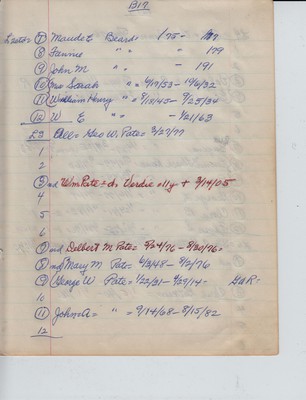 B17
⑦ Maude E Beard 1/75 -
⑧ Fannie " " - 1/79
⑨ John M " " - 1/91
⑩ Sarah " " 6/17/53 - 12/6/32
⑪ William Henry " " 9/13/45 - 9/25/34
⑫ W E " " - 1/21/63
L3 Geo W, Pate = 3/27/77
1
2
③ and Wm Pate ± d. Verdie + 3/14/05
4
5
6
⑦ and Delbert M Pate = 3/24/76 - 8/20/76 =
⑧ and Mary M Pate = 6/3/48 - 8/2/76
⑨ George W Pate = 1/22/31 - 4/29/14 =
10
⑪ John = A = " = 9/14/68 - 8/15/82
12